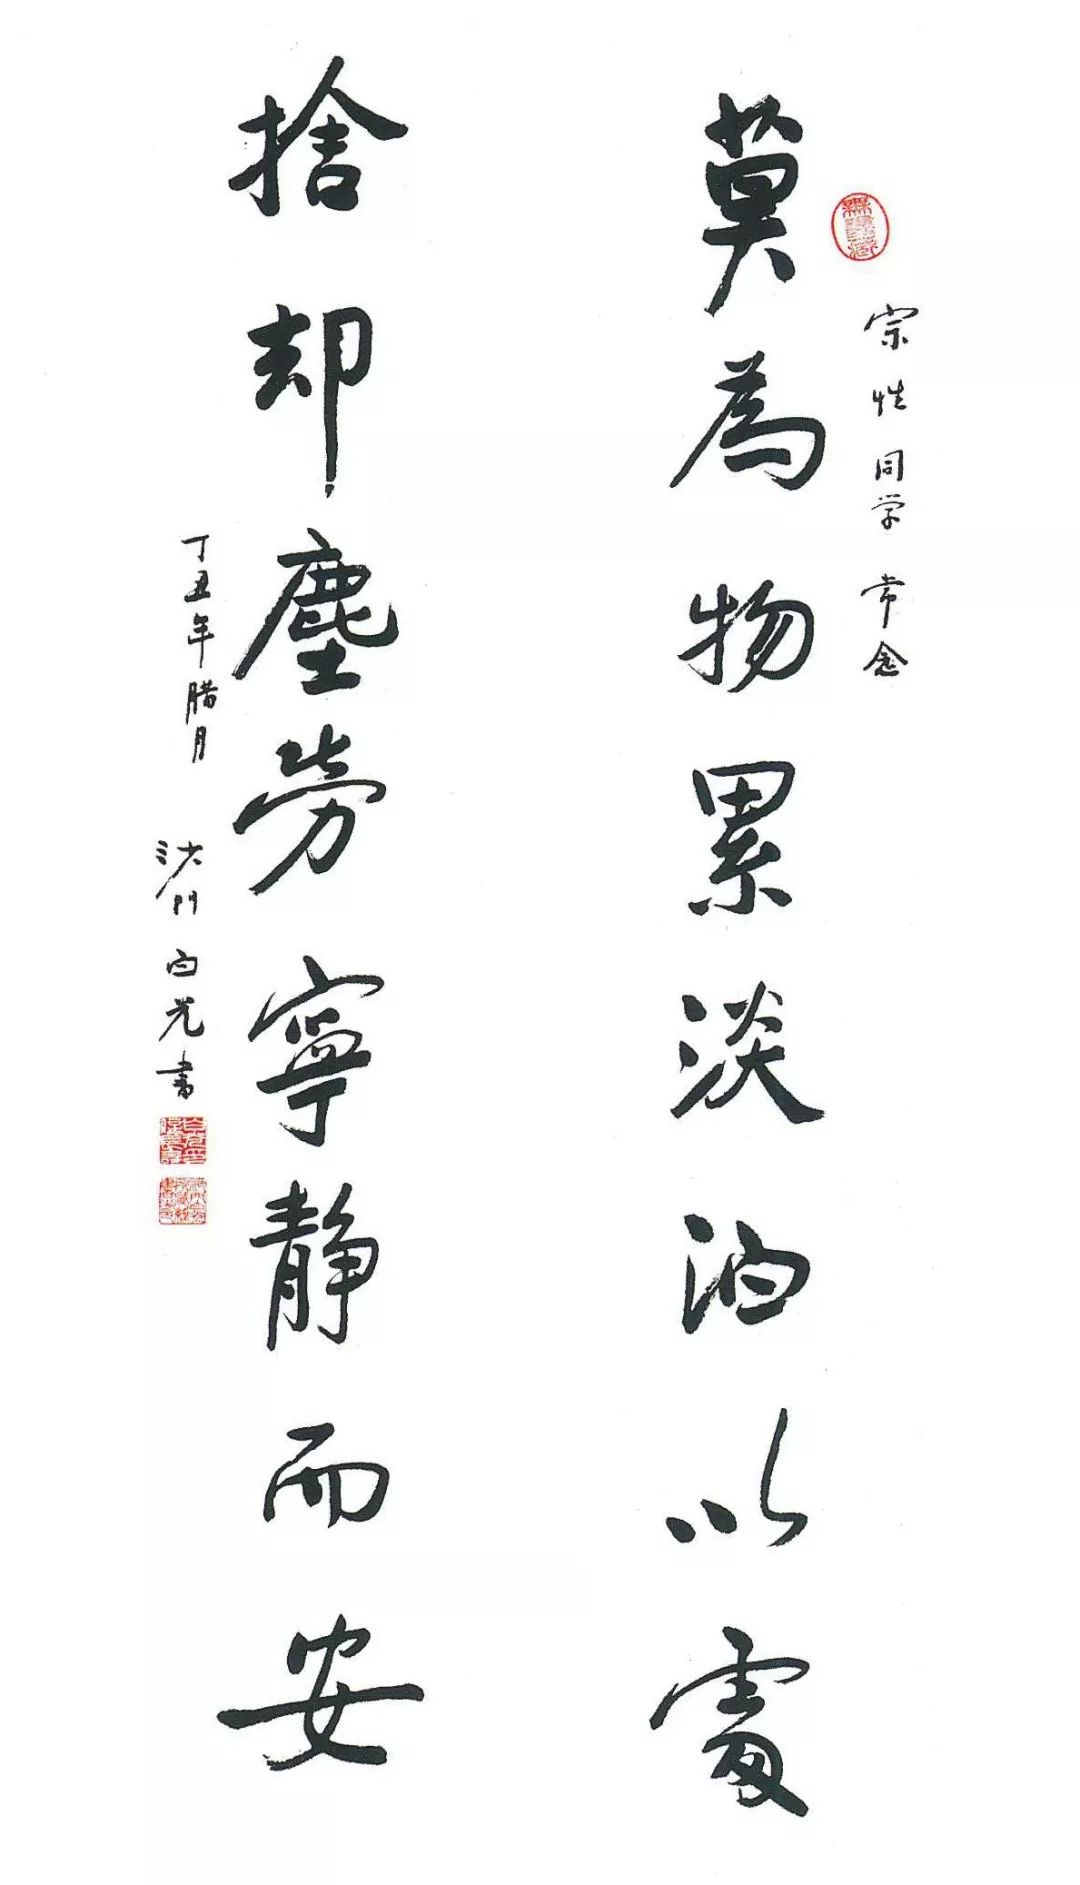 宗性同学 常念
莫為物累淡泊以處
捨却塵勞寧靜而安
丁丑年腊月 沙門白光书